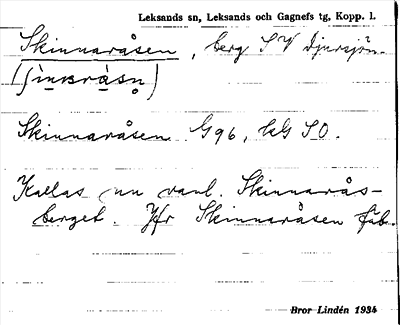 Leksands sn, Leksands och Gagnefs tg, Kopp. l.
Skinnaråsen, berg SV Djursjön.
Skinnaråsen G96, bl 8 SO.
Kallas nu vanl. Skinnarås-
berget. Jfr Skinnaråsen fäb.
Bror Lindén 1934